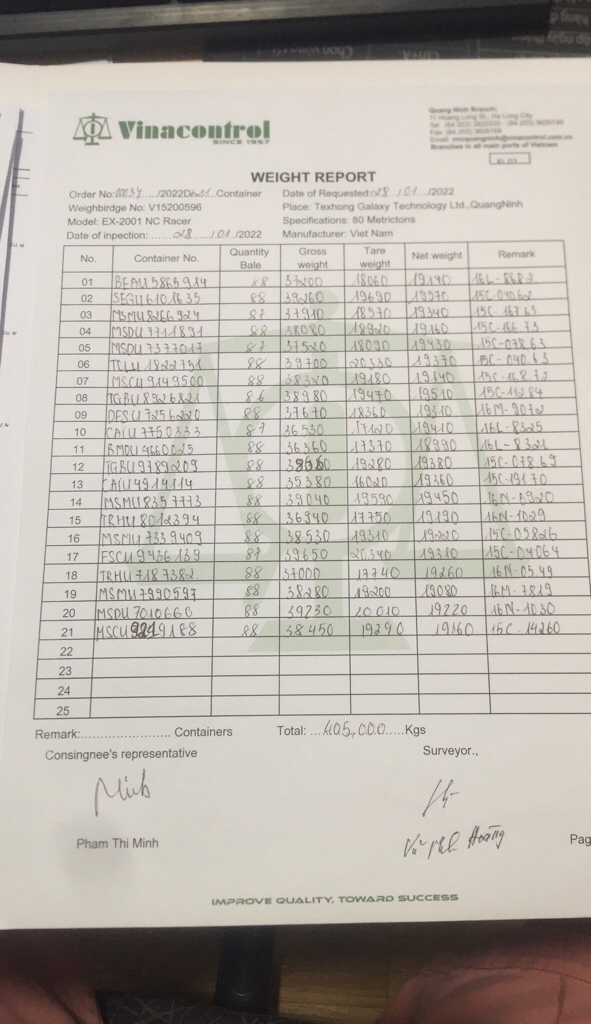 Vinacontrol
SINCE 1957
Quang Ninh Branch:
Branches in all main ports of Vietnam
WEIGHT REPORT
Order No: /2022 Container Date of Requested: 28 / 01 /2022
Weighbirdge No: V15200596 Place: Texhong Galaxy Technology Ltd.,QuangNinh
Model: EX-2001 NC Racer Specifications: 80 Metrictons
Date of inpection: ...... 28 ..../.01./2022 Manufacturer: Viet Nam
No. Container No. Quantity Bale Gross weight Tare weight Net weight Remark
01 BEAU5865914 88 37200 18060 19140
02 SEGU6101635 88 39260 19690 19570
03 87 37910 18570 19340 15C-167.63
04 MSDU7711891 88 38080 18920 19160 15C-166.73
05 MSDU7377017 87 37520 18090 19430 15C-078.63
06 TCLU1822751 88 39700 20330 19370 15C-040.63
07 MSCU9149500 88 38320 19180 19140
08 TGBU8926821 86 38980 19470 19510
09 DFSU7256220 88 37670 18360 19310 16M-9072
10 CAIU7750333 87 36530 17120 19410 16L-8325
11 BMOU4660025 88 36360 17370 18990 16L-8321
12 TGBU9789209 88 19280 19380 15C-078.69
13 CAIU4914114 88 35380 16020 19360 15C-191.70
14 MSMU8357773 88 39040 19590 19450 16N-6920
15 TRHU8012394 88 36940 17750 19190 16N-1029
16 MSMU7339409 88 38530 19310 19220 15C-05826
17 FSCU9436139 87 39650 20340 19310 15C-04064
18 TRHU7187382 88 37000 17740 19260 16N-0549
19 MSMU7990597 88 38280 19200 19080 16M-7819
20 MSDU7010660 88 39230 20010 19220 16N-1030
21 MSCU9219188 88 38450 19290 19160 15C-14260
22
23
24
25
Remark:........................ Containers Total: ...405,000.....Kgs
Consingnee's representative Surveyor.,
Minh
Pham Thi Minh Hoàng Pag
IMPROVE QUALITY, TOWARD SUCCESS